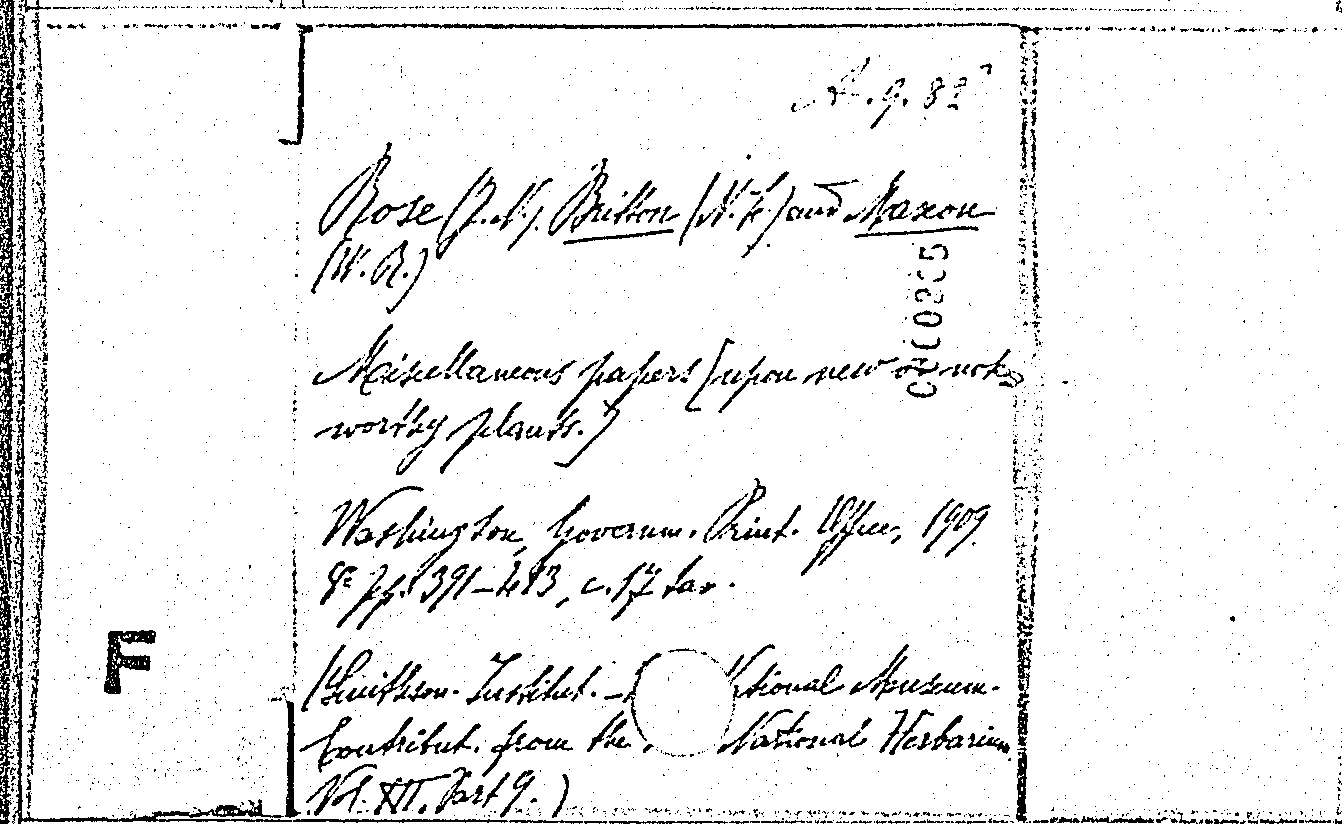 A. 9. 82
Rose (J. N.) Britton (N. L.) and Maxon
(W. R.)
Miscellaneous papers (upon new or note
worthy plants.)
Washington, Governm. Print. Office, 1909
8° pp. 391–413, c. 17 tav.
(Smithson. Institut. – National Museum.
Contribut. from the National Herbarium
Vol. XII. Part 9.)
F